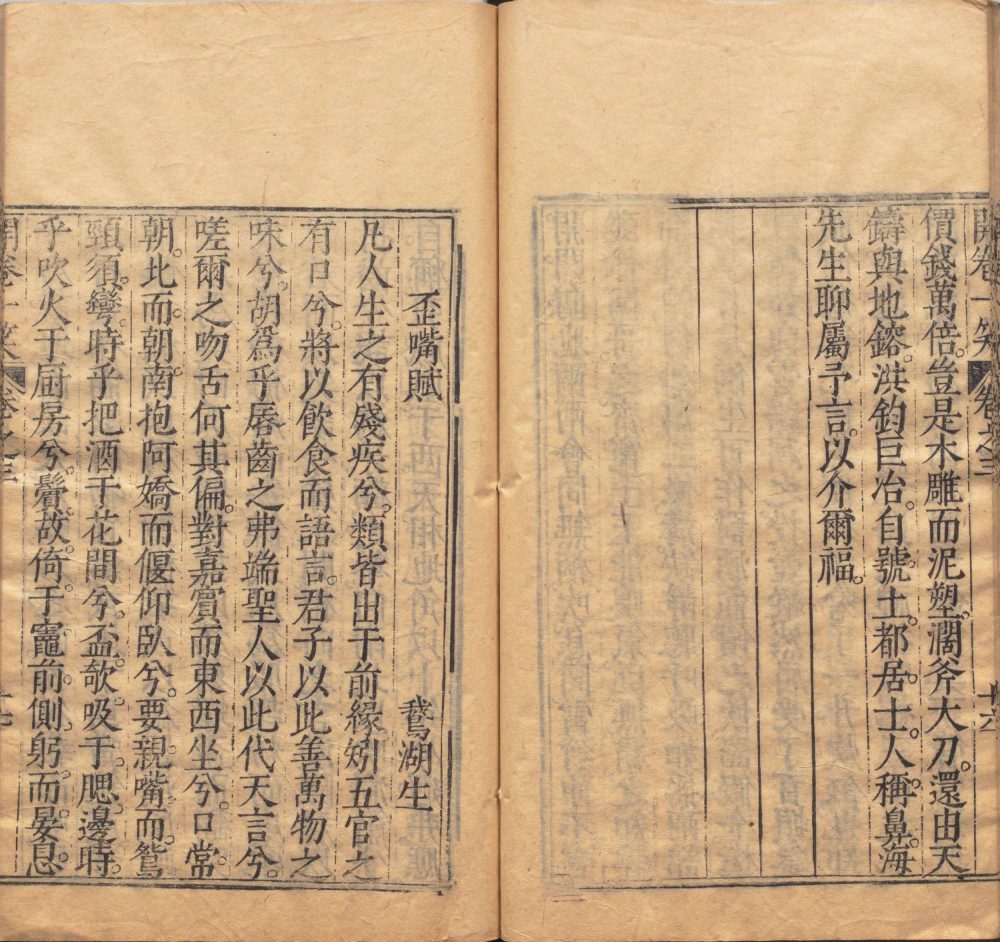 開卷一笑 卷之三 十六
價錢萬倍。豈是木雕而泥塑。濶斧大刀。還由天
鑄與地鎔。洪鈞巨冶。自號土都居士。人稱鼻海
先生。聊屬予言。以介爾福。
歪嘴賦 鵞湖生
凡人生之有殘疾兮。類皆出于前緣。矧五官之
有口兮。將以飲食而語言。君子以此善萬物之
味兮。胡爲乎唇齒之弗端。聖人以此代天言兮。
嗟爾之吻舌何其偏。對嘉賓而東西坐兮。口常
朝北而朝南。抱阿嬌而偃仰臥兮。要親嘴而鴛
頸須彎。時乎把酒于花間兮。盃欹吸于腮邊。時
乎吹火于厨房兮。鬢故倚于竈前。側躬而晏息
開卷一笑 卷之三